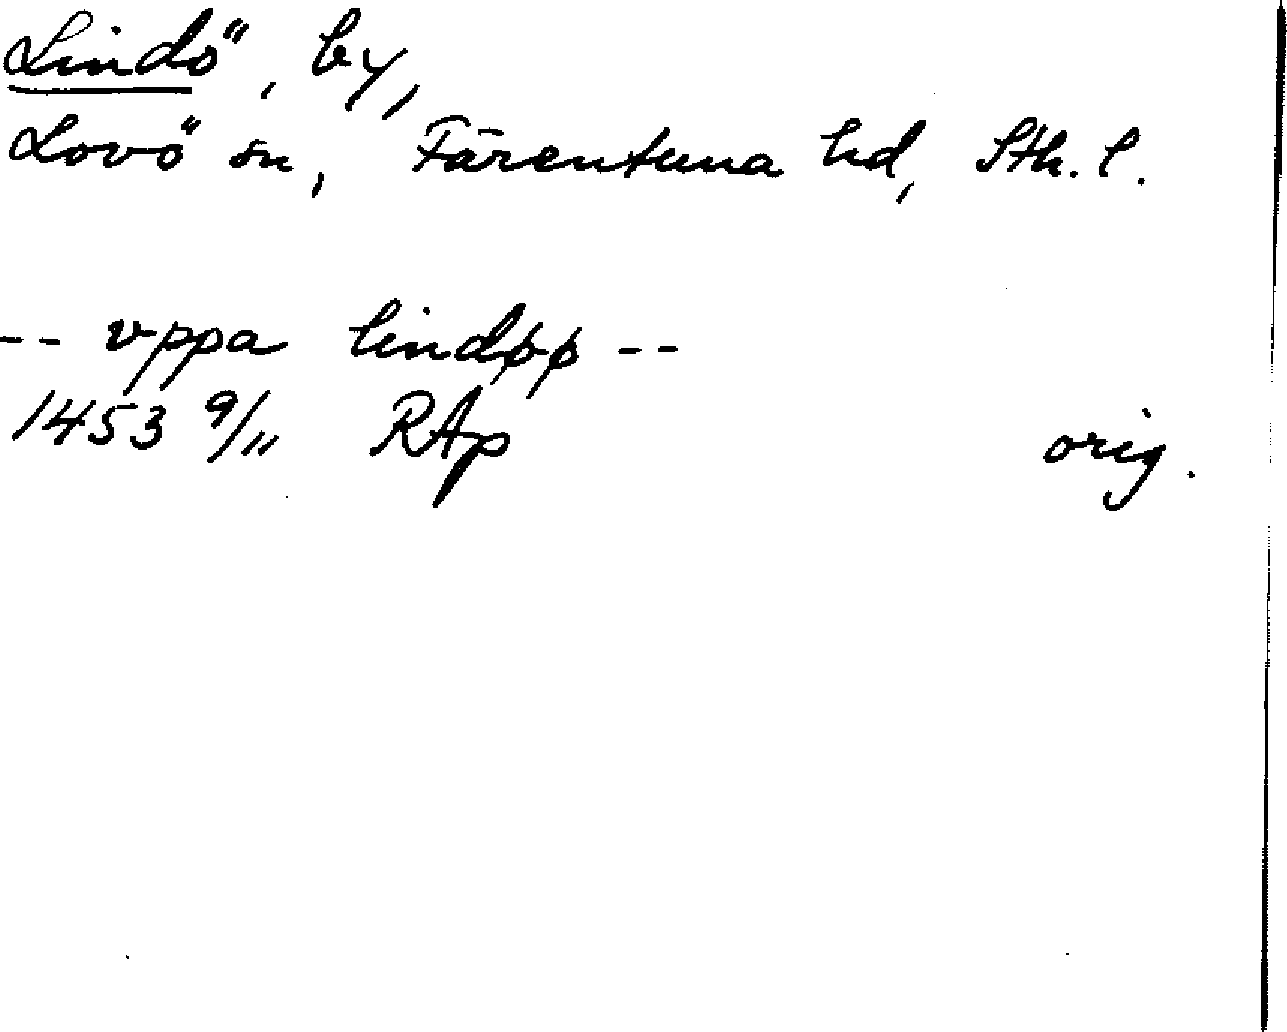 Lindö, by,
Lovö sn, Färentuna hd, Sth. l.
-- vppa lindøø --
1453 9/11 RAp orig.